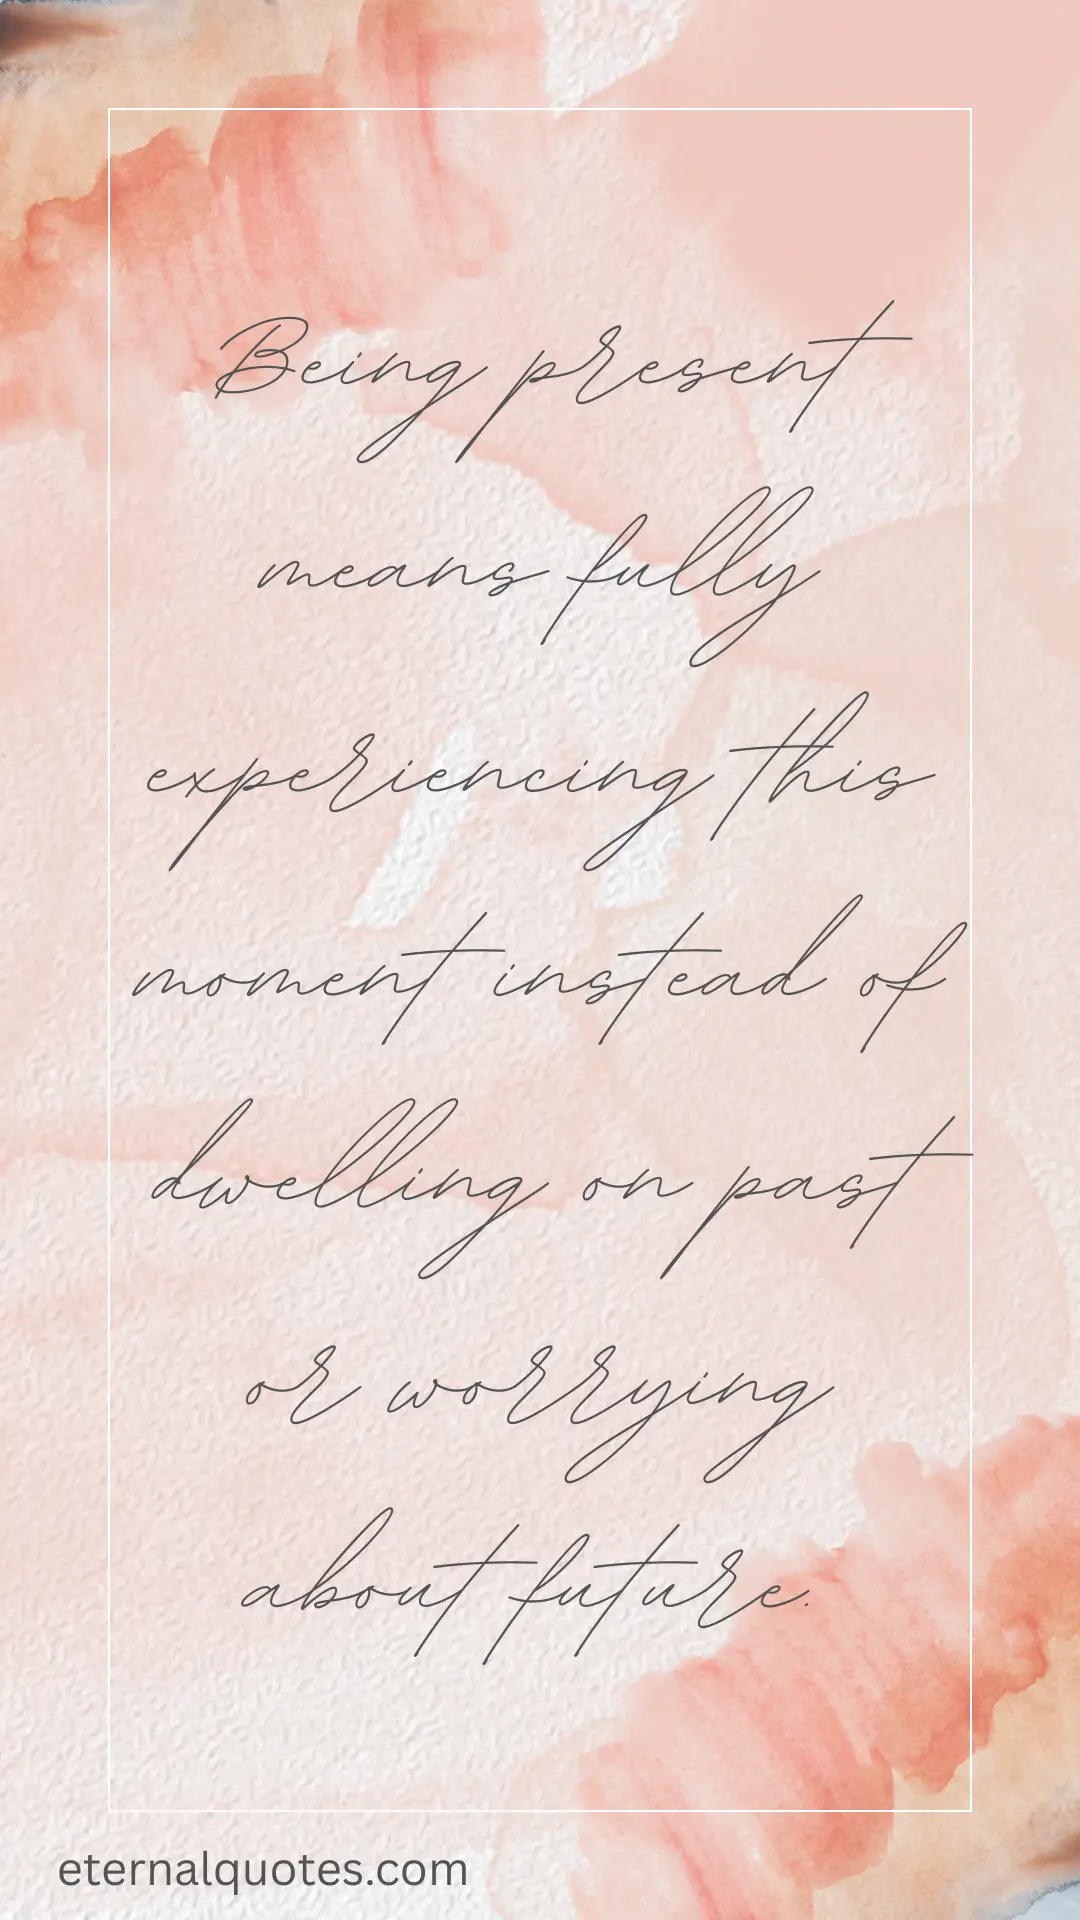 Being present
means fully
experiencing this
moment instead of
dwelling on past
or worrying
about future.
eternalquotes.com